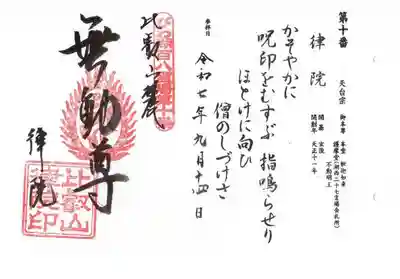 第十番
律院
天台宗
御本尊
本堂 釈迦如来
不動明王
開基
開創年 天正十一年
かそやかに
呪印をむすぶ 指鳴らせり
ほとけに向ひ
僧のしづけさ
参拝日
令和七年九月十四日
比叡山麓
無動尊
律院
比叡山
律院印